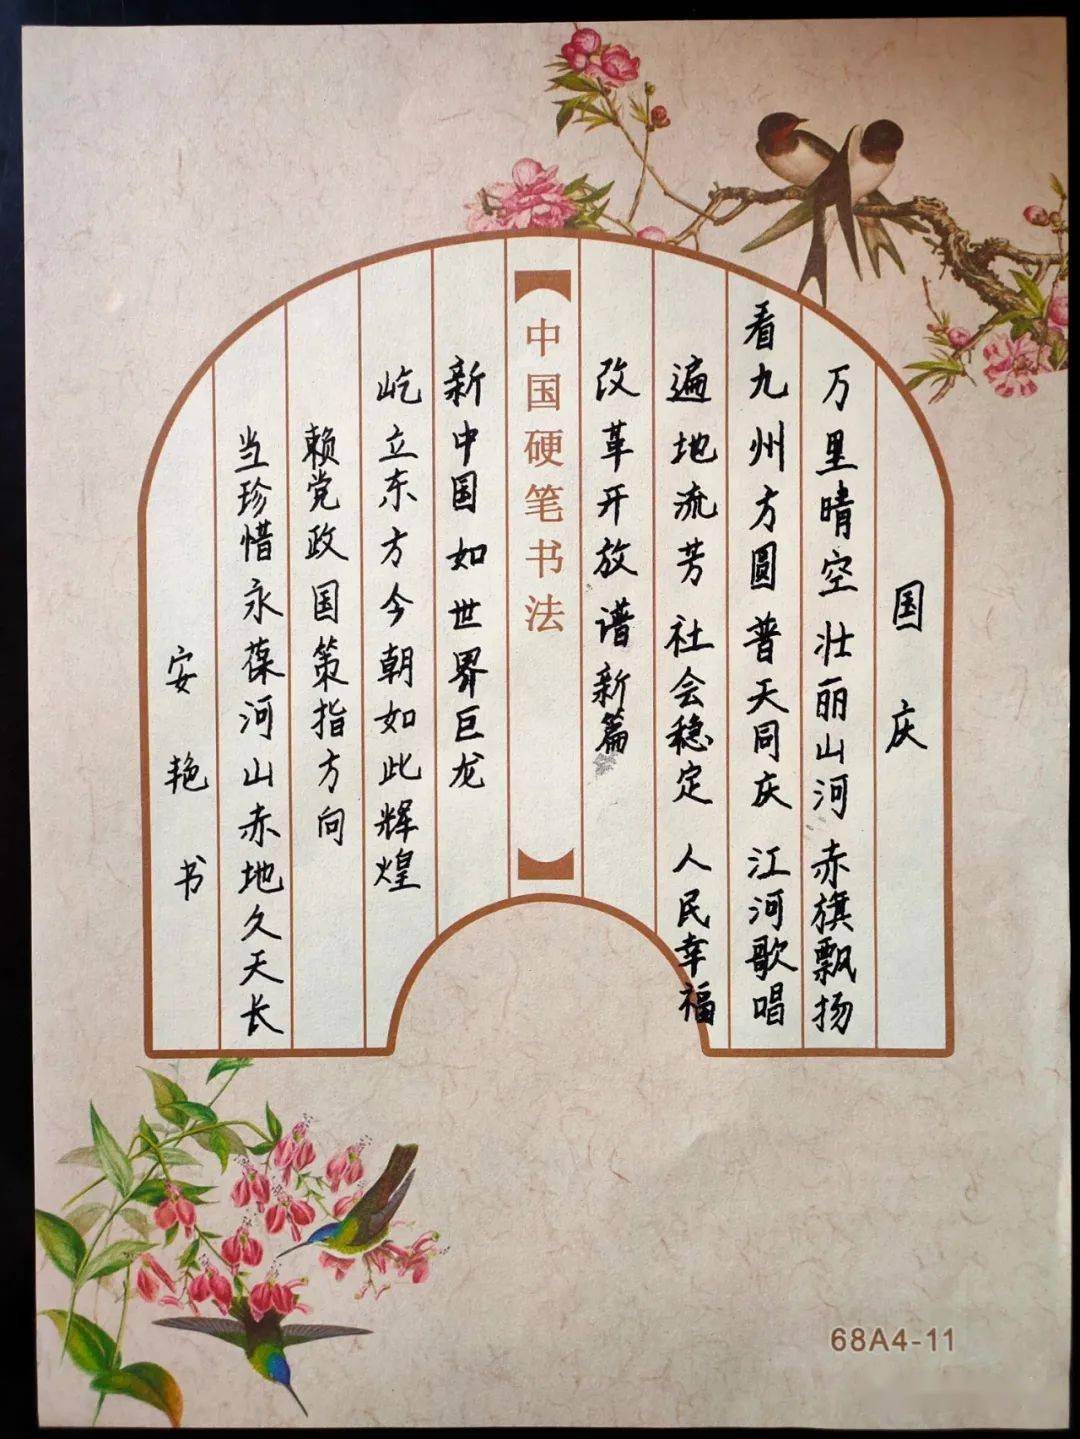 国庆
万里晴空壮丽山河赤旗飘扬
看九州方圆普天同庆江河歌唱
遍地流芳社会稳定人民幸福
改革开放谱新篇
中国硬笔书法
新中国如世界巨龙
屹立东方今朝如此辉煌
赖党政国策指方向
当珍惜永葆河山赤地久天长
安艳书
68A4-11